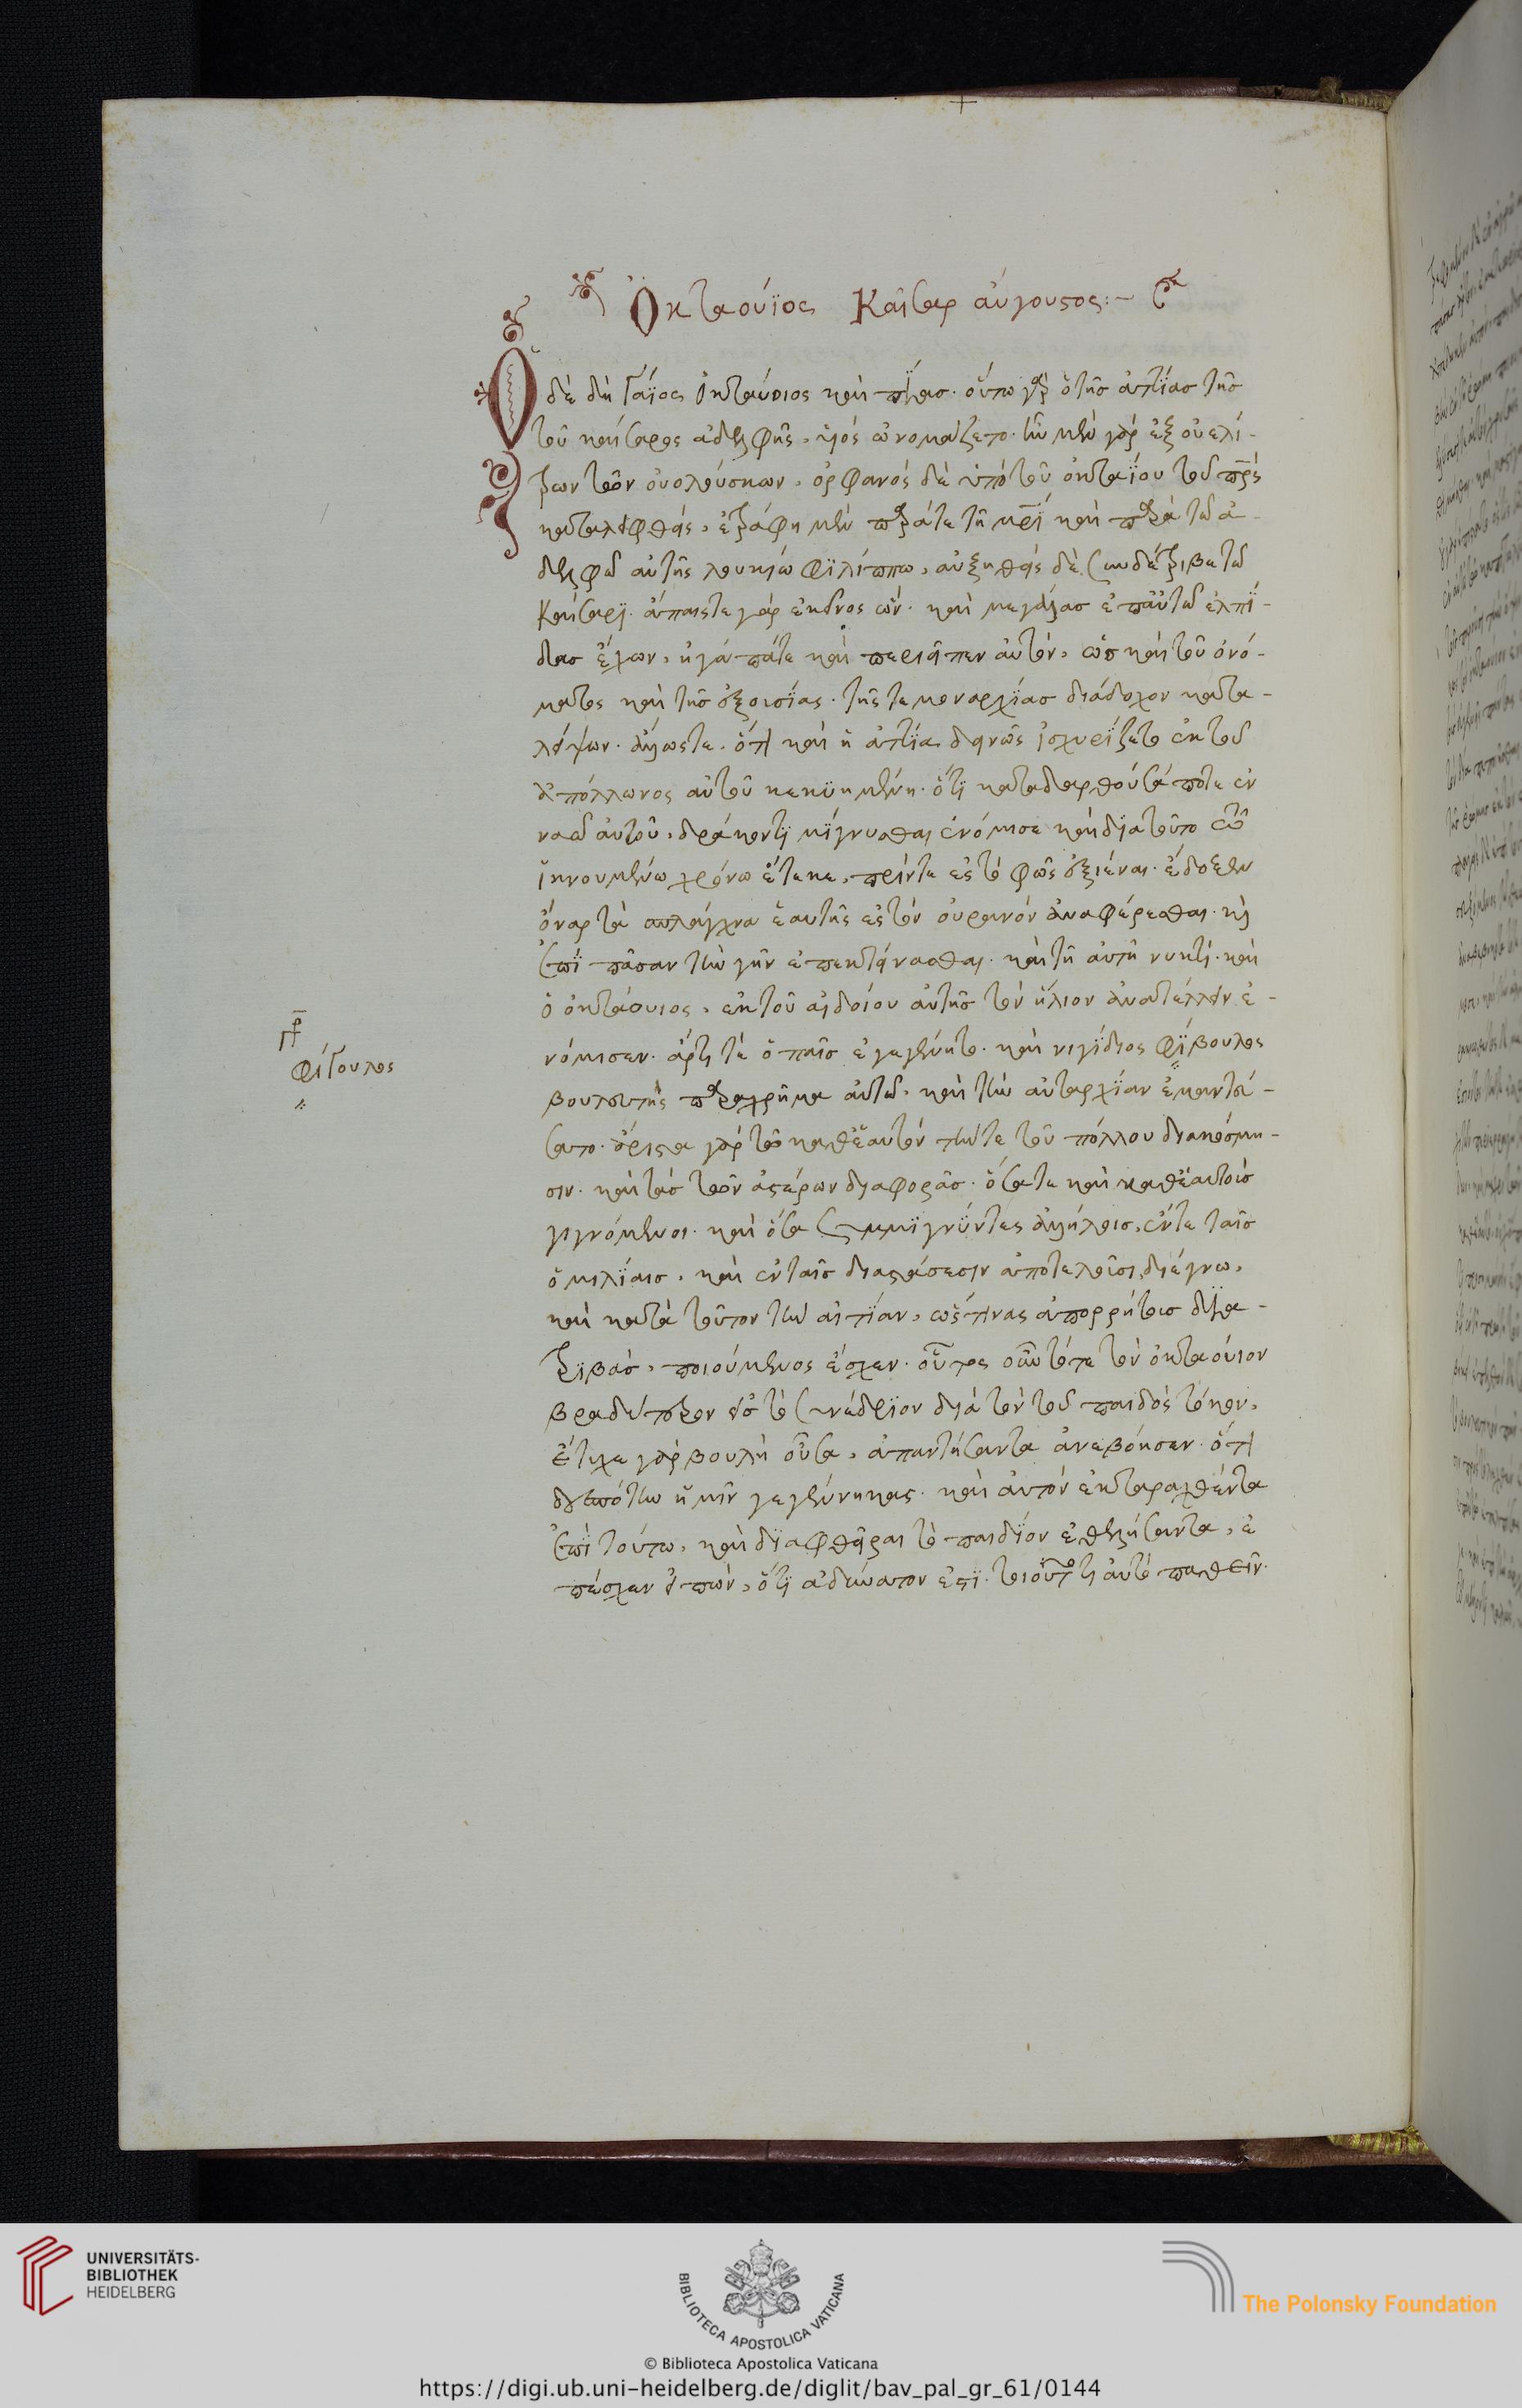 Ὀκταούϊος Καῖσαρ αὔγουστος:-
Ὁ δὲ δὴ Γάϊος Ὀκταύσιος καὶ πίας· οὕτω γὰρ ὁ τῆς ἀτίας τῆς
τοῦ καίσαρος ἀδελφῆς, υἱός ὠνομάζετο· ἦν μὲν γάρ ἐξ οὐελί-
τρων τῶν οὐολούσκων, ὀρφανός δὲ ὑπὸ τοῦ ὀκταΐου τοῦ πρς
καταλειφθείς, ἐτράφη μὲν παρά τε τῆ μρϊ καὶ παρὰ τῶ ἀ-
δελφῶ αὐτῆς λουκίω φιλίππω, αὐξηθείς δὲ συνδιέτριβε τῶ
Καίσαρϊ· ἄπαιςτε γάρ ἐκεῖνος ὤν· καὶ μεγάλας ἐπαὐτῶ ἐλπϊ-
δας ἔχων, ἠγάπάτε καὶ περιεῖπεν αὐτόν, ὡς καὶ τοῦ ὀνό-
ματος καὶ τῆς ἐξουσίας· τῆς τε μοναρχίας διάδοχον κατα-
λείψων· ἄλλωςτε, ὅτι καὶ ἡ ἀτϊία δεινῶς ἰσχυρίζετο ἐκ τοῦ
ἀπόλλωνος αὐτοῦ κεκυημένη· ὅτι καταδαρθούσά ποτε ἐν
ναῶ αὐτοῦ, δράκοντι μίγνυσθαι ἐνόμισε καὶ διατοῦτο τῶ
ἱκνουμένω χρόνω ἔτεκε, πρίντε ἐς τό φῶς ἐξιέναι· ἔδοξεν
ὄναρ τὰ σπλάγχνα ἑαυτῆς ἐς τόν οὐρανόν ἀναφέρεσθαι· καὶ
ἐπϊ πᾶσαν τὴν γῆν ἐπεκτείνασθαι· καὶ τῆ αὐτῆ νυκτί· καὶ
ὁ ὀκτάουιος, ἐκ τοῦ αἰδοίου αὐτῆς τόν ἥλιον ἀνατέλλειν ἐ-
νόμισεν· ἄρτι τὲ ὁ παῖς ἐγεγέννητο· καὶ νιγίδιος φίβουλος
βουλευτής παραχρῆμα αὐτῶ, καὶ τὴν αὐταρχίαν ἐμαντεύ-
σατο· ἄριστα γάρ τῶν καθἑαυτόν τήντε τοῦ πόλλου διακόσμη-
σιν· καὶ τάς τῶν ἀστέρων διαφοράς· ὅσατε καὶ καθἑαυτοὺς
γιγνόμενοι· καὶ ὅσα συμμιγνύντες ἀλλήλοις, ἔντε ταῖς
ὁμιλίαις, καὶ ἐν ταῖς διαστάσεσιν ἀποτελοῦσι, διέγνω,
καὶ κατὰ τοῦτον τὴν αἰτίαν, ὥς τινας ἀπορρήτους δϊα-
τριβάς, ποιούμενος ἔσχεν· οὗτος οὖν τότε τόν ὀκταούιον
βραδύτερον εἰς τό συνέδριον διά τόν τοῦ παιδός τόκον,
ἔτυχε γάρ βουλή οὖσα, ἀπαντήσαντα ἀνεβόησεν· ὅτι
δεσπότην ἡμῖν γεγέννηκας· καὶ αὐτόν ἐκταραχθέντα
ἐπϊ τούτω, καὶ διαφθεῖραι τὸ παιδίον ἐθελήσαντα, ἐ
πέσχεν εἰπών, ὅτι ἀδύνατον ἐστϊ· τοιοῦτό τι αὐτό παθεῖν·
γρ
φίγουλος